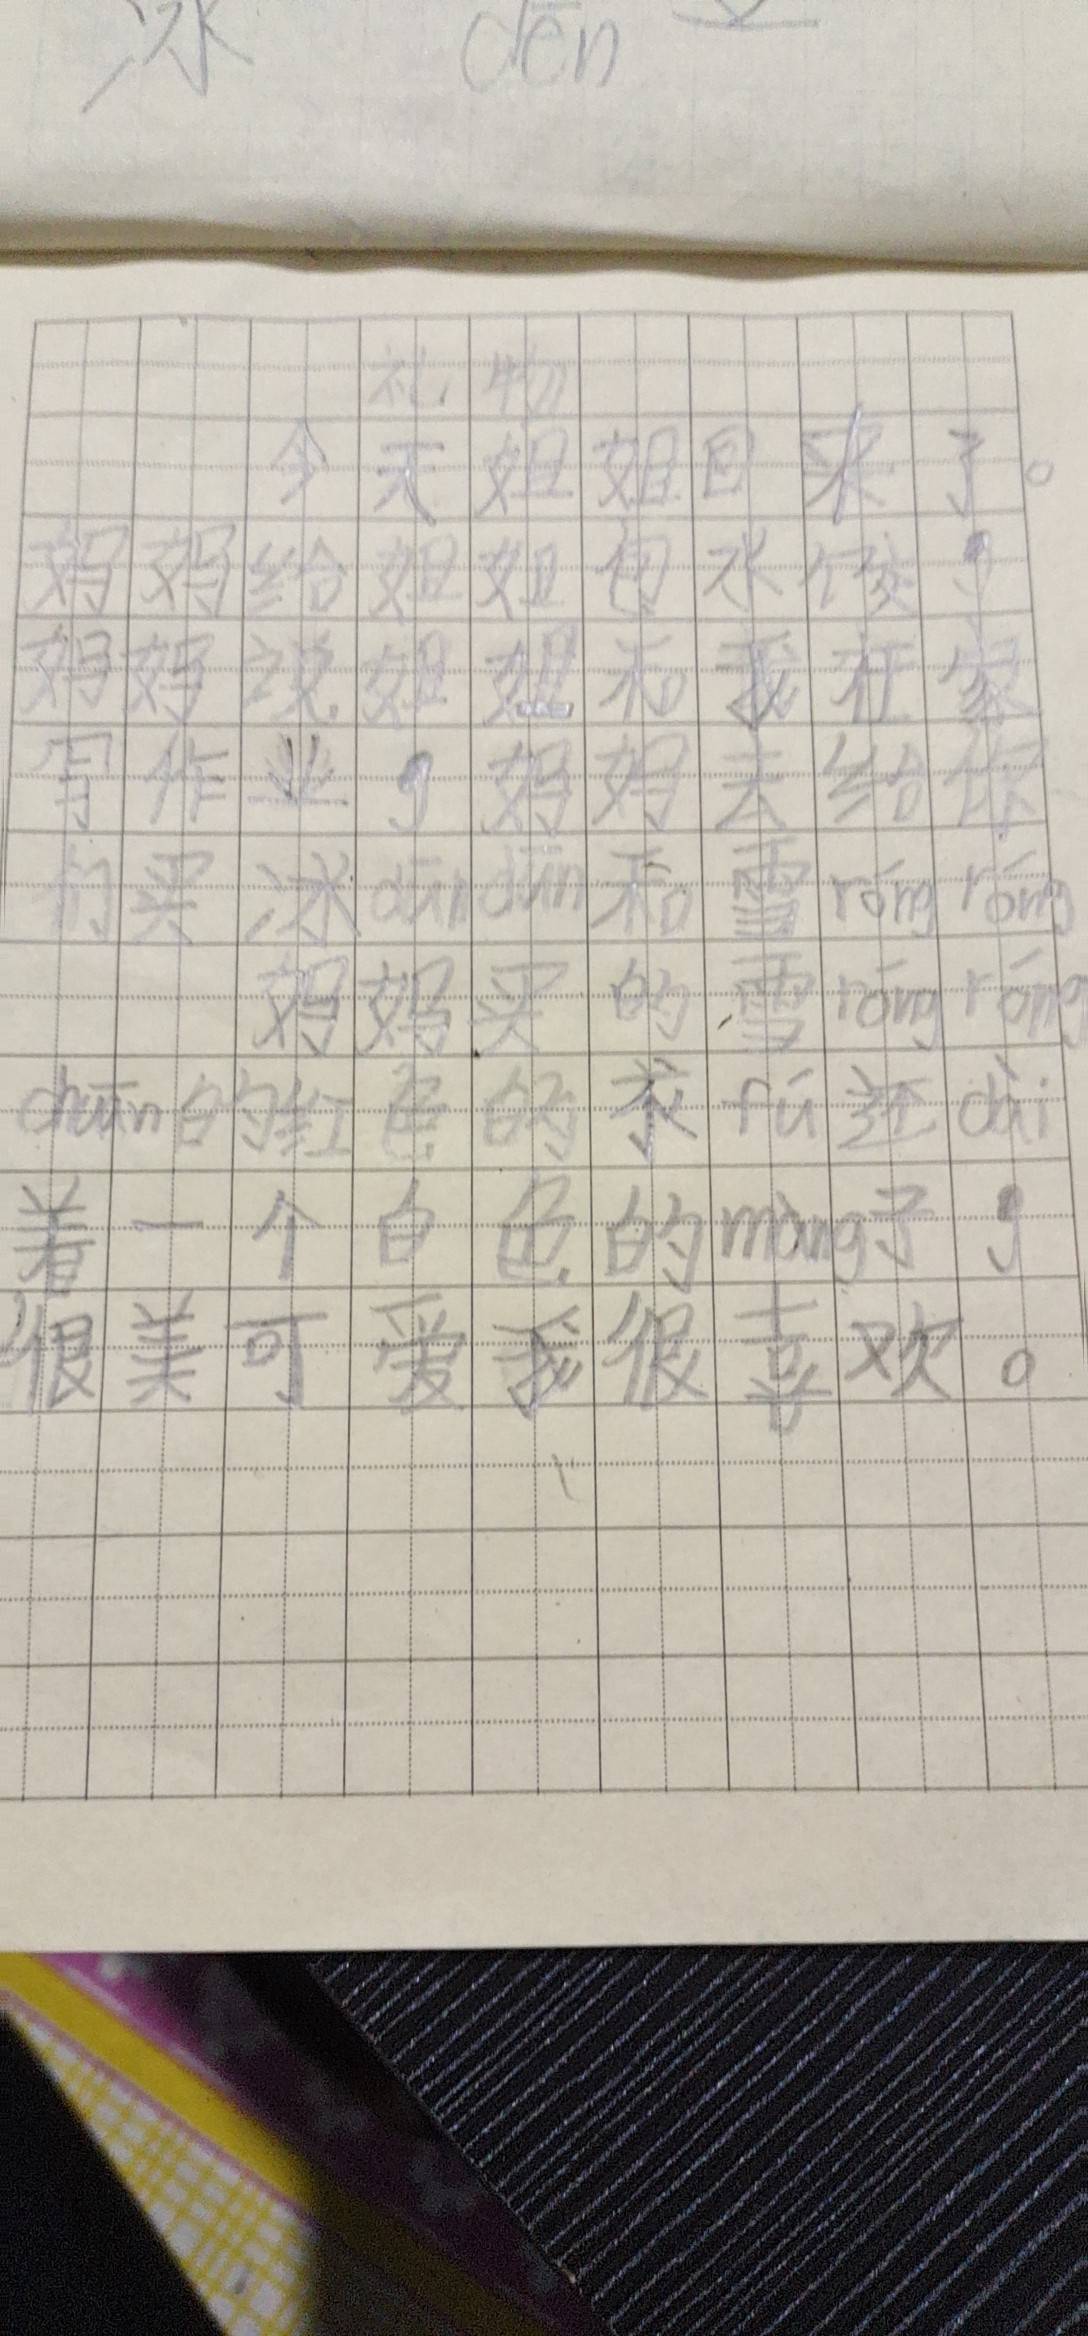 冰 dēn
礼物
今天姐姐回来了。
妈妈给姐姐包水饺，
妈妈说姐姐和我在家
写作业，妈妈去给你
们买冰dūn dūn和雪róng róng
妈妈买的雪róng róng
chuān的红色的衣fú还dài
着一个白色的màng子，
很美可爱我很喜欢。